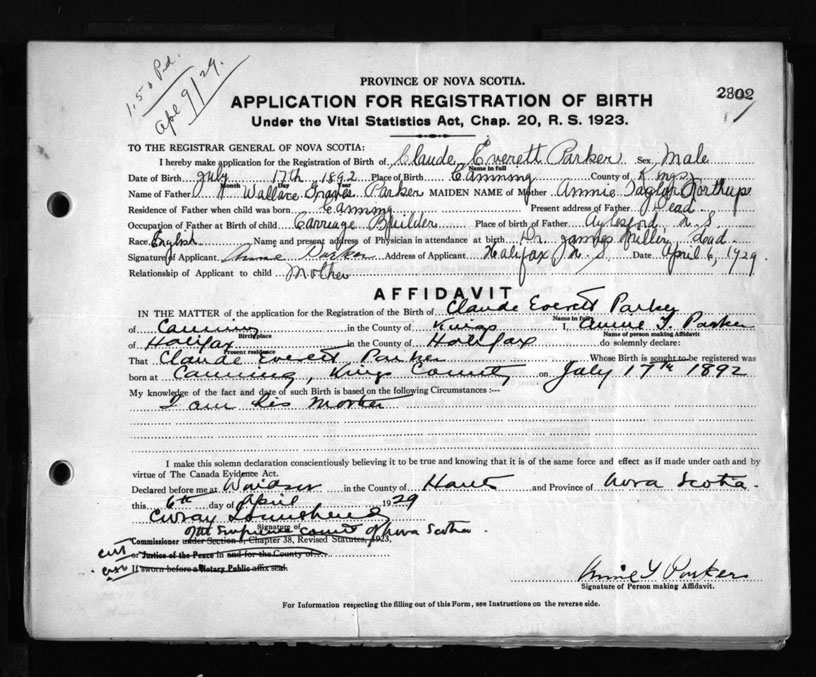 1.50 Pd.
Apl 9/29.
2302
PROVINCE OF NOVA SCOTIA.
APPLICATION FOR REGISTRATION OF BIRTH
Under the Vital Statistics Act, Chap. 20, R. S. 1923.
TO THE REGISTRAR GENERAL OF NOVA SCOTIA:
I hereby make application for the Registration of Birth of Claude Everett Parker Sex Male
Name in full
Date of Birth July 17th 1892 Place of Birth Canning County of Kings
Month Day Year
Name of Father Wallace Graves Parker MAIDEN NAME of Mother Annie Taylor Northup
Residence of Father when child was born Canning Present address of Father Dead
Occupation of Father at Birth of child Carriage Builder Place of birth of Father Aylesford, N. S.
Race English Name and present address of Physician in attendance at birth Dr. James Miller, dead.
Signature of Applicant Annie Parker Address of Applicant Halifax N. S. Date April 6, 1929.
Relationship of Applicant to child Mother
AFFIDAVIT
IN THE MATTER of the application for the Registration of the Birth of Claude Everett Parker
Name in full
of Canning in the County of Kings I, Annie T. Parker
Birthplace Name of person making Affidavit
of Halifax in the County of Halifax do solemnly declare:
Present residence
That Claude Everett Parker Whose Birth is sought to be registered was
born at Canning, Kings County on July 17th 1892
My knowledge of the fact and date of such Birth is based on the following Circumstances :—
I am his mother
I make this solemn declaration conscientiously believing it to be true and knowing that it is of the same force and effect as if made under oath and by
virtue of The Canada Evidence Act.
Declared before me at Windsor in the County of Hants and Province of Nova Scotia.
this 6th day of April 1929
Signature of
of the Supreme Court of Nova Scotia.
Commissioner under Section 8, Chapter 38, Revised Statutes, 1923,
or Justice of the Peace in and for the County of
If sworn before a Notary Public affix seal
Annie T Parker
Signature of Person making Affidavit.
For Information respecting the filling out of this Form, see Instructions on the reverse side.